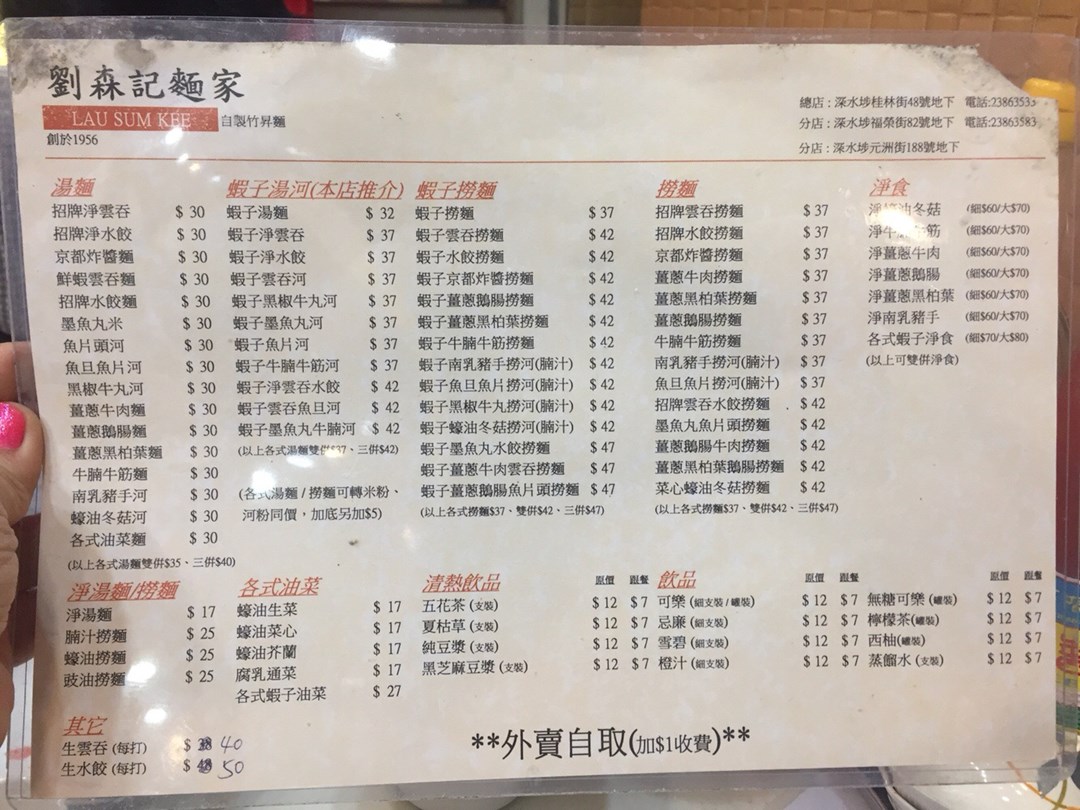 劉森記麵家
LAU SUM KEE 自製竹昇麵
創於1956
總店：深水埗桂林街48號地下 電話:23863533
分店：深水埗福榮街82號地下 電話:23863583
分店：深水埗元洲街188號地下
湯麵
招牌淨雲吞 $ 30
招牌淨水餃 $ 30
京都炸醬麵 $ 30
鮮蝦雲吞麵 $ 30
招牌水餃麵 $ 30
墨魚丸米 $ 30
魚片頭河 $ 30
魚旦魚片河 $ 30
黑椒牛丸河 $ 30
薑蔥牛肉麵 $ 30
薑蔥鵝腸麵 $ 30
薑蔥黑柏葉麵 $ 30
牛腩牛筋麵 $ 30
南乳豬手河 $ 30
蠔油冬菇河 $ 30
各式油菜麵 $ 30
(以上各式湯麵雙併$35、三併$40)
蝦子湯河(本店推介)
蝦子湯麵 $ 32
蝦子淨雲吞 $ 37
蝦子淨水餃 $ 37
蝦子雲吞河 $ 37
蝦子黑椒牛丸河 $ 37
蝦子墨魚丸河 $ 37
蝦子魚片河 $ 37
蝦子牛腩牛筋河 $ 37
蝦子淨雲吞水餃 $ 42
蝦子雲吞魚旦河 $ 42
蝦子墨魚丸牛腩河 $ 42
(以上各式湯麵雙併$37、三併$42)
(各式湯麵 / 撈麵可轉米粉、
河粉同價，加底另加$5)
蝦子撈麵
蝦子撈麵 $ 37
蝦子雲吞撈麵 $ 42
蝦子水餃撈麵 $ 42
蝦子京都炸醬撈麵 $ 42
蝦子薑蔥鵝腸撈麵 $ 42
蝦子薑蔥黑柏葉撈麵 $ 42
蝦子牛腩牛筋撈麵 $ 42
蝦子南乳豬手撈河(腩汁) $ 42
蝦子魚旦魚片撈河(腩汁) $ 42
蝦子黑椒牛丸撈河(腩汁) $ 42
蝦子蠔油冬菇撈河(腩汁) $ 42
蝦子墨魚丸水餃撈麵 $ 47
蝦子薑蔥牛肉雲吞撈麵 $ 47
蝦子薑蔥鵝腸魚片頭撈麵 $ 47
(以上各式撈麵$37、雙併$42、三併$47)
撈麵
招牌雲吞撈麵 $ 37
招牌水餃撈麵 $ 37
京都炸醬撈麵 $ 37
薑蔥牛肉撈麵 $ 37
薑蔥黑柏葉撈麵 $ 37
薑蔥鵝腸撈麵 $ 37
牛腩牛筋撈麵 $ 37
南乳豬手撈河(腩汁) $ 37
魚旦魚片撈河(腩汁) $ 37
招牌雲吞水餃撈麵 $ 42
墨魚丸魚片頭撈麵 $ 42
薑蔥鵝腸牛肉撈麵 $ 42
薑蔥黑柏葉鵝腸撈麵 $ 42
菜心蠔油冬菇撈麵 $ 42
(以上各式撈麵$37、雙併$42、三併$47)
淨食
淨蠔油冬菇 (細$60/大$70)
淨牛筋 (細$60/大$70)
淨薑蔥牛肉 (細$60/大$70)
淨薑蔥鵝腸 (細$60/大$70)
淨薑蔥黑柏葉 (細$60/大$70)
淨南乳豬手 (細$60/大$70)
各式蝦子淨食 (細$70/大$80)
(以上可雙併淨食)
淨湯麵/撈麵
淨湯麵 $ 17
腩汁撈麵 $ 25
蠔油撈麵 $ 25
豉油撈麵 $ 25
各式油菜
蠔油生菜 $ 17
蠔油菜心 $ 17
蠔油芥蘭 $ 17
腐乳通菜 $ 17
各式蝦子油菜 $ 27
清熱飲品 原價 跟餐
五花茶 (支裝) $ 12 $ 7
夏枯草 (支裝) $ 12 $ 7
純豆漿 (支裝) $ 12 $ 7
黑芝麻豆漿 (支裝) $ 12 $ 7
飲品 原價 跟餐 原價 跟餐
可樂 (細支裝 / 罐裝) $ 12 $ 7 無糖可樂 (罐裝) $ 12 $ 7
忌廉 (細支裝) $ 12 $ 7 檸檬茶(罐裝) $ 12 $ 7
雪碧 (細支裝) $ 12 $ 7 西柚(罐裝) $ 12 $ 7
橙汁 (細支裝) $ 12 $ 7 蒸餾水 (支裝) $ 12 $ 7
其它
生雲吞 (每打) $ 40
生水餃 (每打) $ 50
**外賣自取(加$1收費)**